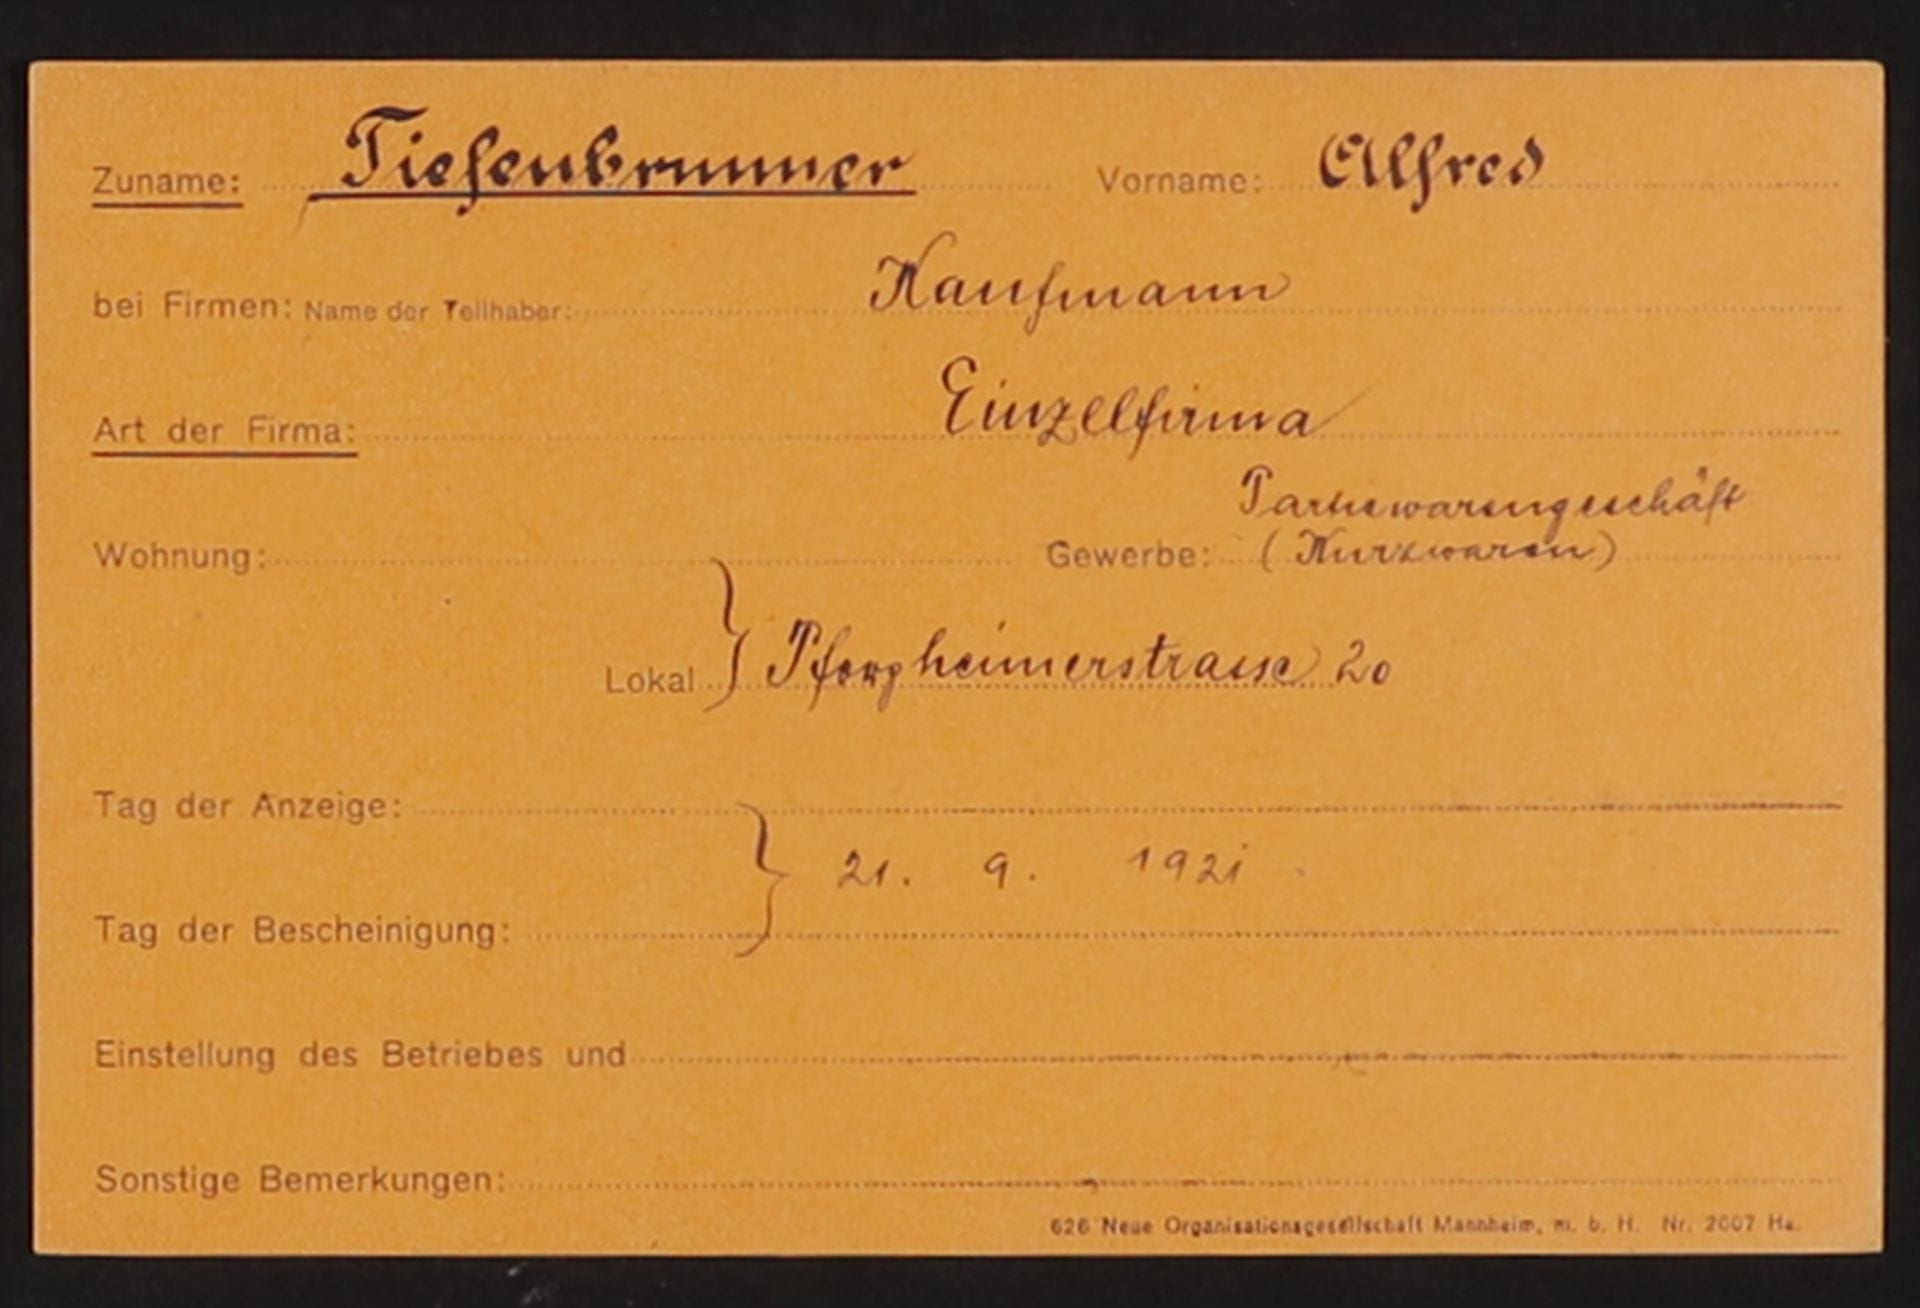 Zuname: Tiefenbrunner Vorname: Alfred
bei Firmen: Name der Teilhaber: Kaufmann
Art der Firma: Einzelfirma
Partiewarengeschäft
Wohnung: Gewerbe: (Kurzwaren)
Lokal Pforzheimerstrasse 20
Tag der Anzeige:
21. 9. 1921
Tag der Bescheinigung:
Einstellung des Betriebes und
Sonstige Bemerkungen:
626 Neue Organisationsgesellschaft Mannheim, m. b. H. Nr. 2607 Ha.